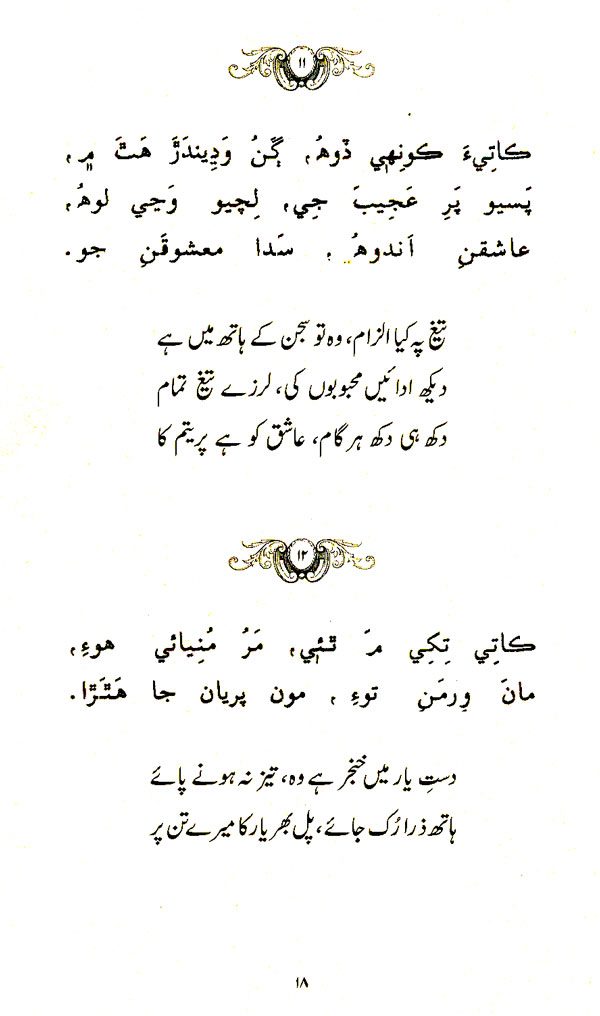 ۱۱
ڪاتِيءَ ڪونِهي ڏوهُ، ڳَنُ وَڍِيندَڙَ هَٿَ ۾،
پَسيو پَرِ عَجِيبَ جِي، لِچيو وَڃي لوهُ،
عاشقنِ اَندوهُ، سَدا معشوقَنِ جو.
تیغ پہ کیا الزام، وہ تو سجن کے ہاتھ میں ہے
دیکھ ادائیں محبوبوں کی، لرزے تیغ تمام
دکھ ہی دکھ ہر گام، عاشق کو ہے پریتم کا
۱۲
ڪاتِي تِکِي مَ ٿئي، مَرُ مُنِيائي هوءِ،
مانَ وِرمَنِ توءِ، مون پريان جا هَٿَڙا.
دستِ یار میں خنجر ہے وہ، تیز نہ ہونے پائے
ہاتھ ذرا رُک جائے، پل بھر یار کا میرے تن پر
۱۸